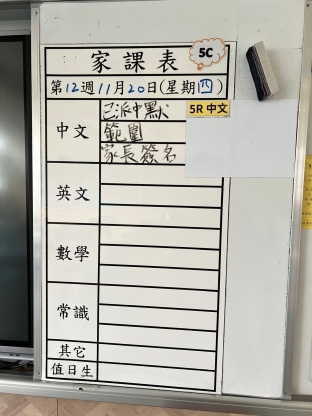 家課表
5C
第12週11月20日(星期四)
5R 中文
中文
已派中默
範圍
家長簽名
英文
數學
常識
其它
值日生